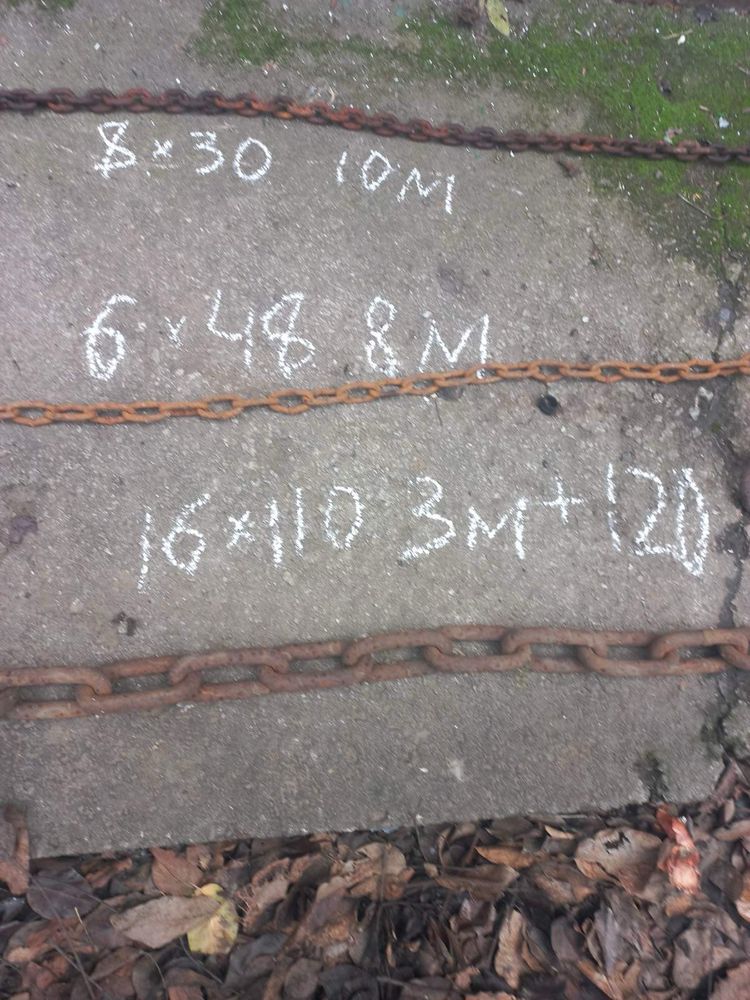 8×30 10м
6×48 8м
16×110 3м+120